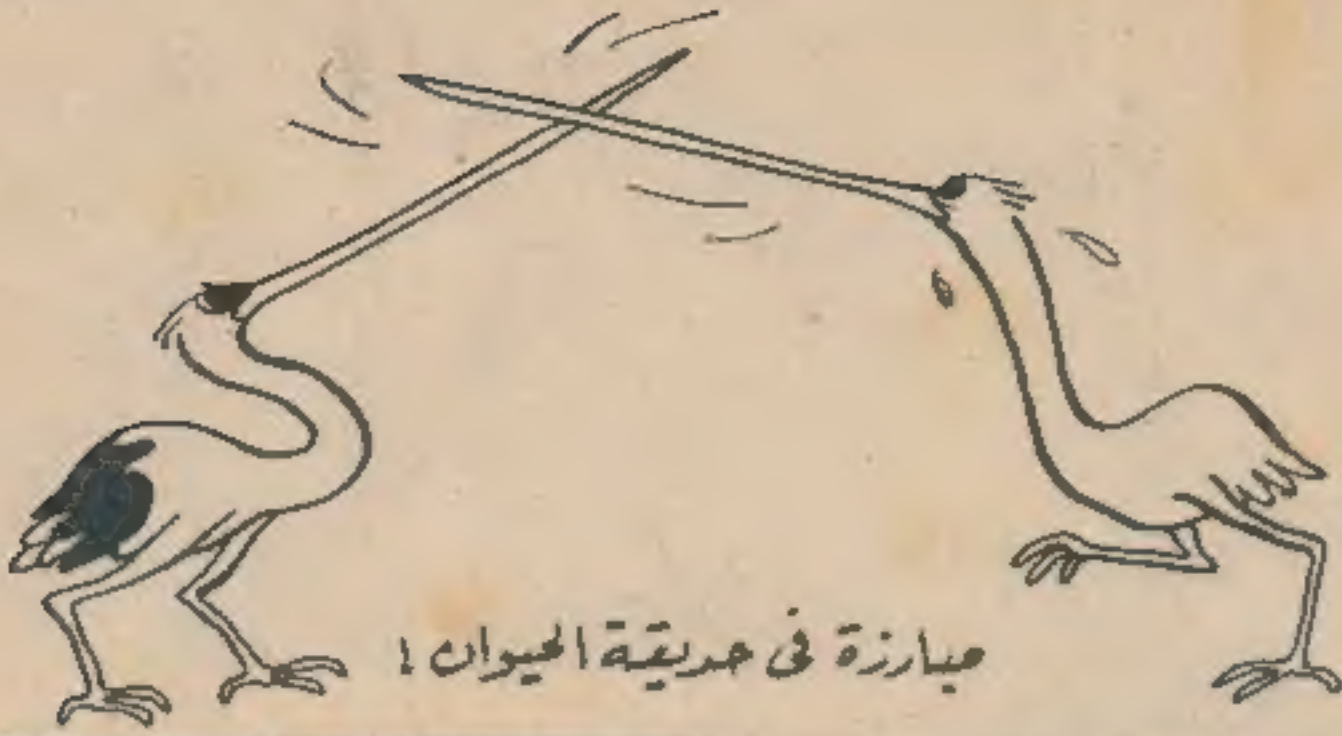 مبارزة فى حديقة الحيوان !